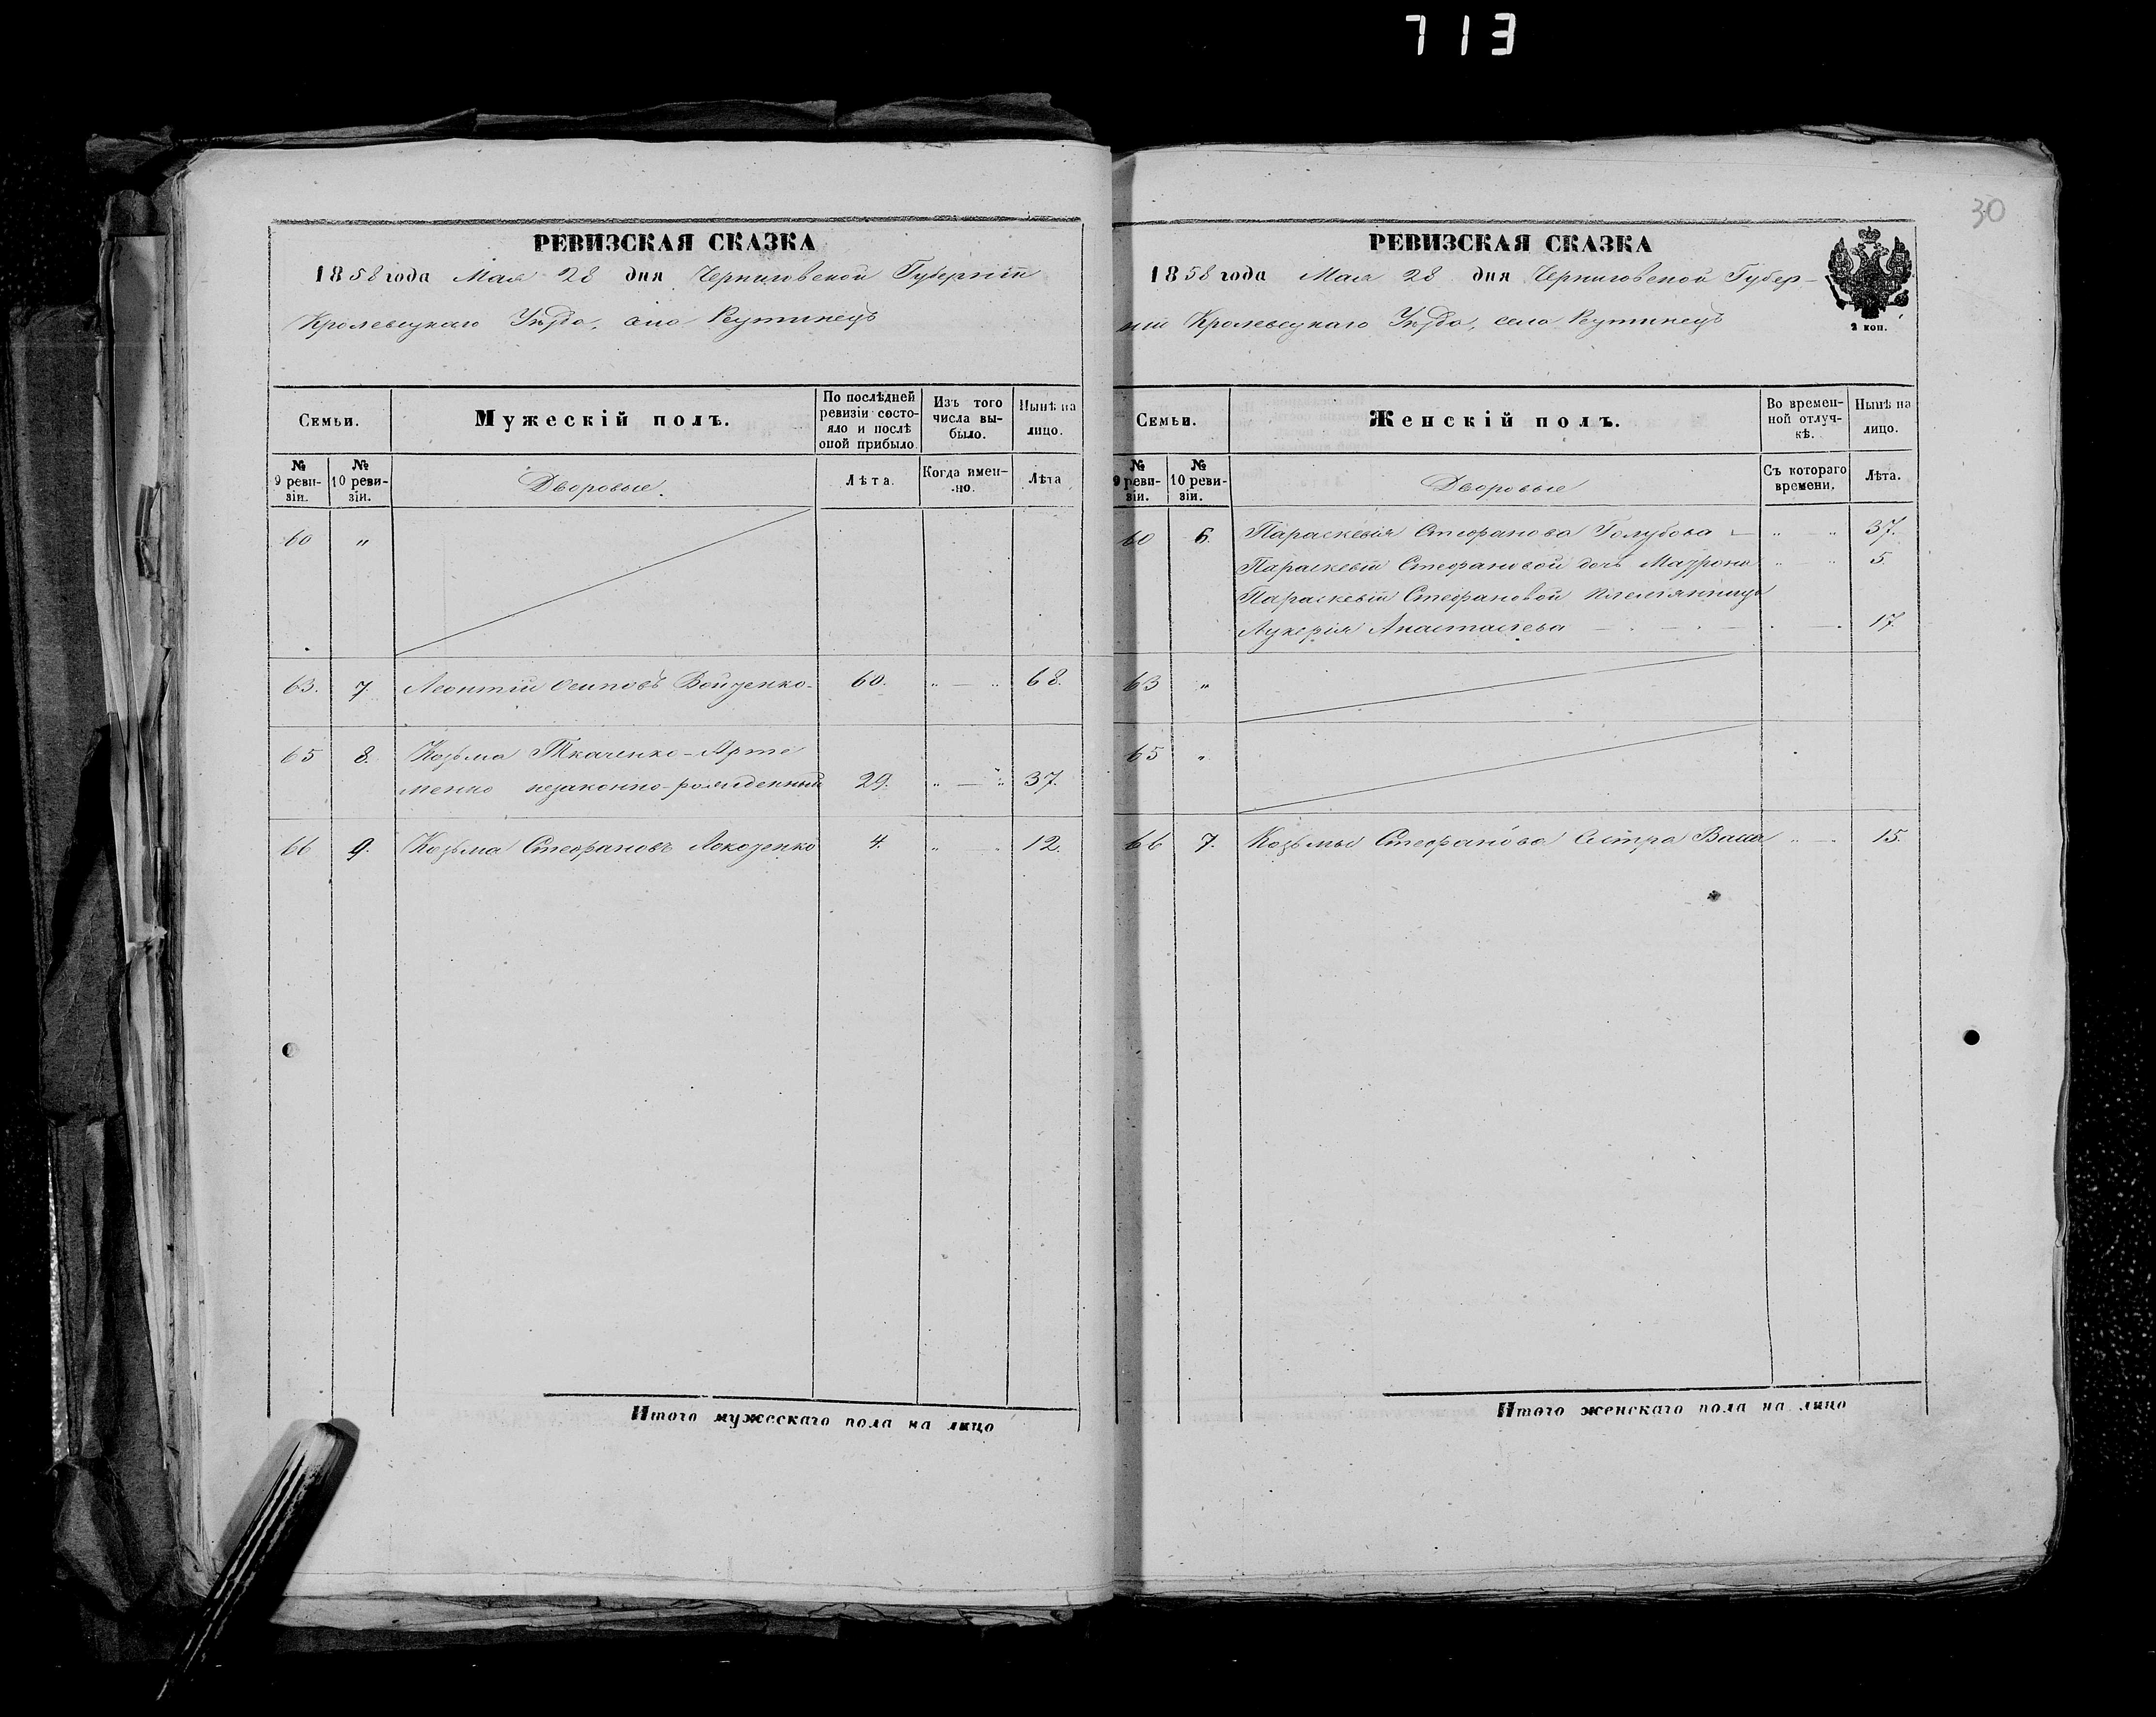 713
30
РЕВИЗСКАЯ СКАЗКА
1858 года Мая 28 дня Черниговской Губерніи
Кролевецкаго Уѣзда, село Реутинецъ
Семьи.
Мужескій полъ.
По послѣдней ревизіи состояло и послѣ оной прибыло.
Изъ того числа выбыло.
Нынѣ на лицо.
№ 9 ревизіи.
№ 10 ревизіи.
Дворовые.
Лѣта.
Когда именно.
Лѣта
60 "
63. 7. Леонтій Осиповъ Войченко- 60. " — " 68.
65 8. Козьма Ткаченко-Арте
менко незаконно-рожденный 29. " — " 37.
66 9. Козьма Стефановъ 4. " — " 12.
Итого мужескаго пола на лицо
РЕВИЗСКАЯ СКАЗКА
1858 года Мая 28 дня Черниговской Губер-
ніи Кролевецкаго Уѣзда, село Реутинецъ
2 коп.
Семьи.
Женскій полъ.
Во временной отлучкѣ.
Нынѣ на лицо.
№ 9 ревизіи.
№ 10 ревизіи.
Дворовые
Съ котораго времени.
Лѣта.
60 6. Параскевія Стефанова Голубова — " — " 37.
Параскевіи Стефановой дочь " — " 5.
Параскевіи Стефановой племянница
Лукерія Анастасіева — . — . — . — . 17.
63 "
65 "
66 7. Козьмы Стефанова сестра Васса " — " 15.
Итого женскаго пола на лицо